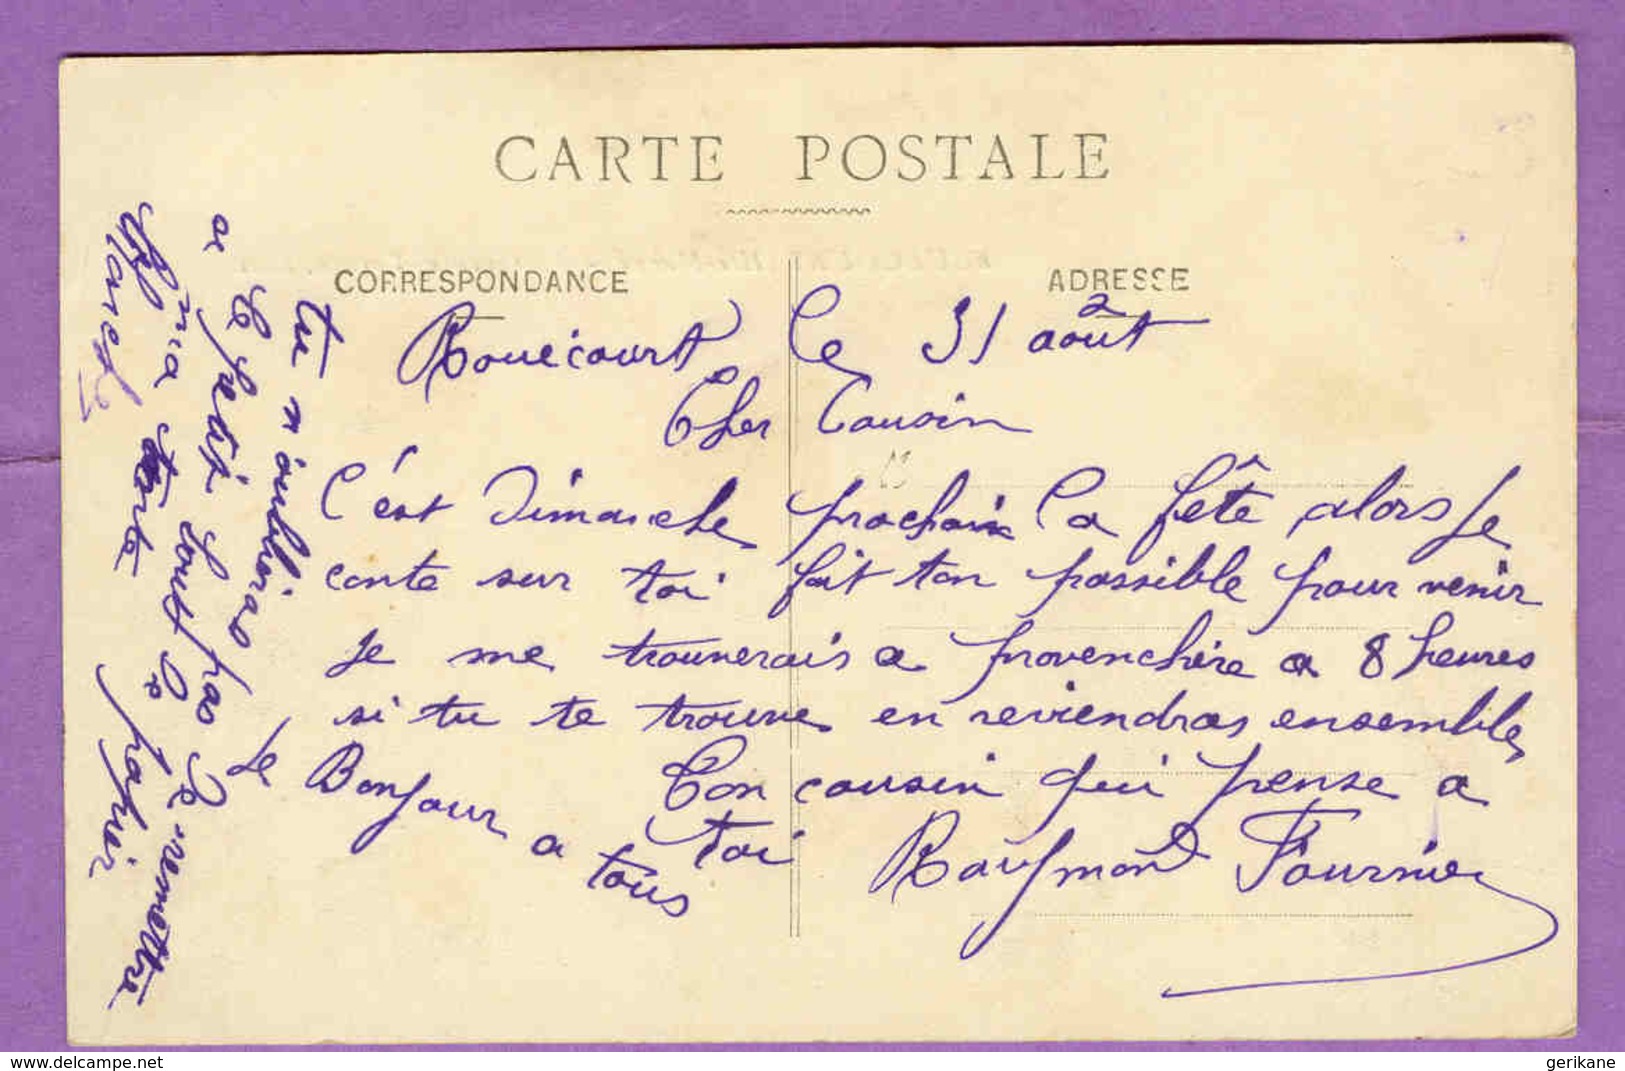 CARTE POSTALE
CORRESPONDANCE
ADRESSE
Rouécourt, Le 31 août
Cher Cousin
C'est Dimanche prochain la fête alors je
conte sur toi fait ton possible pour venir
je me trouverais a provenchère a 8 heures
si tu te trouve en reviendras ensemble,
Ton cousin qui pense a
toi
Raymond Fournier
Le Bonjour a tous
tu n'oublieras pas de remettre
le petit bout de papier
a ma tante
www.delcampe.net
gerikane